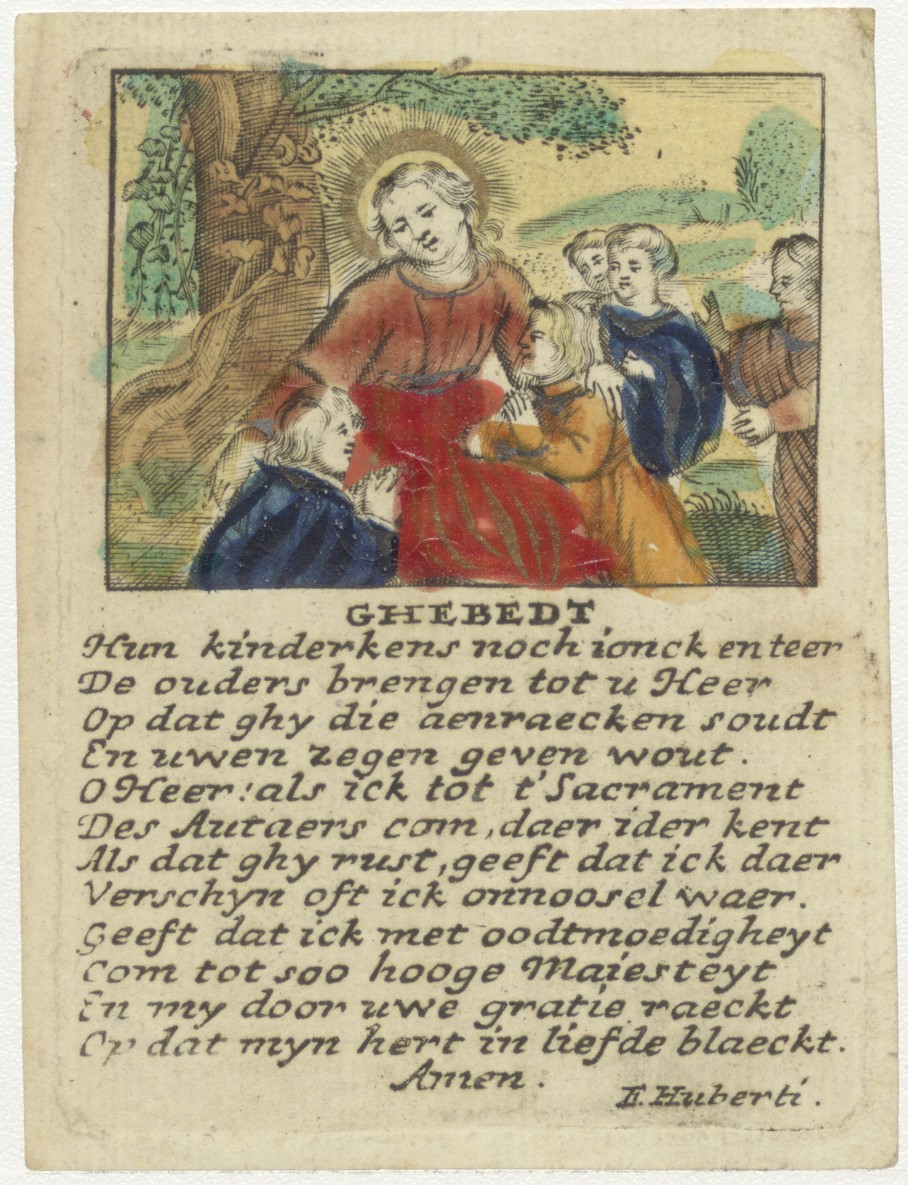 GHEBEDT
Hun kinderkens noch ionck en teer
De ouders brengen tot u Heer
Op dat ghy die aenraecken soudt
En uwen zegen geven wout.
O Heer! als ick tot t'Sacrament
Des Autaers com, daer ider kent
Als dat ghy rust, geeft dat ick daer
Verschyn oft ick onnoosel waer.
Geeft dat ick met oodtmoedigheyt
Com tot soo hooge Maiesteyt
En my door uwe gratie raeckt
Op dat myn hert in liefde blaeckt.
Amen.
F. Huberti.